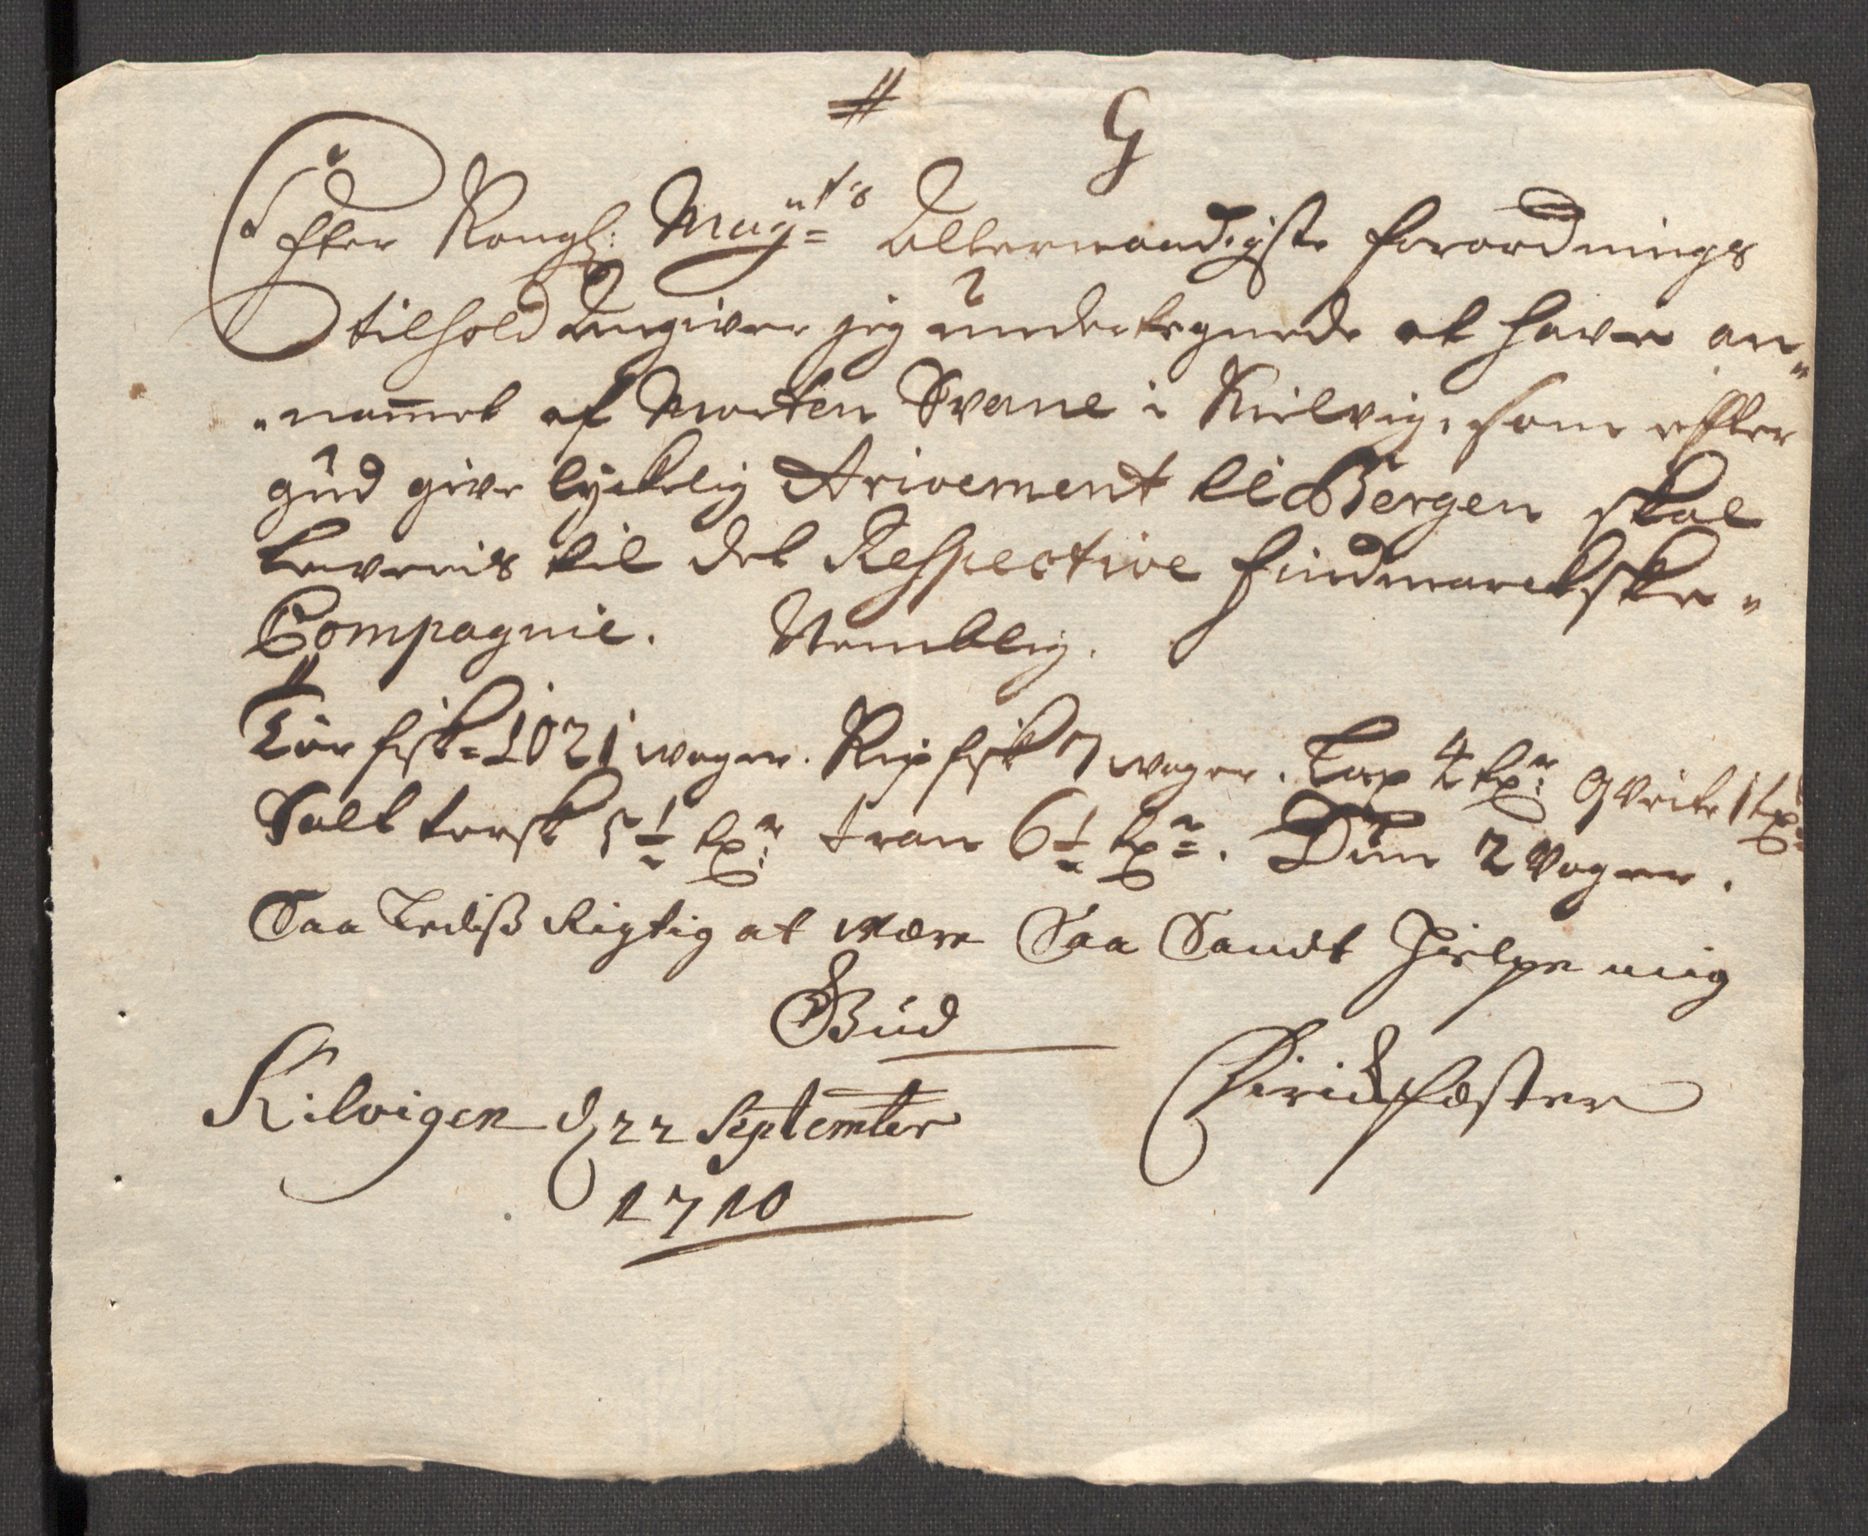 G
Efter Kongl: Mayts Allernaadigste forordnings
tilhold Angiver jeg undertegnede at hafve an„
„nammet af Morten Svane i Kielvig, som efter
gud give lyckelig Arivement til Bergen skal
leveris til det Respective findmarckske„
Compagnie. Nemblig.
Tør fisk 1021 woger. Kip fisk 7 woger. Lax 4 tr: qveite 1 tr:
Salt torsk 5½ tr: tran 6½ tr: Dun 2 Voger.
Saa Rigtig at være Saa Sandt Hielpe mig
Gud
Kilvigen d 22 September
1710